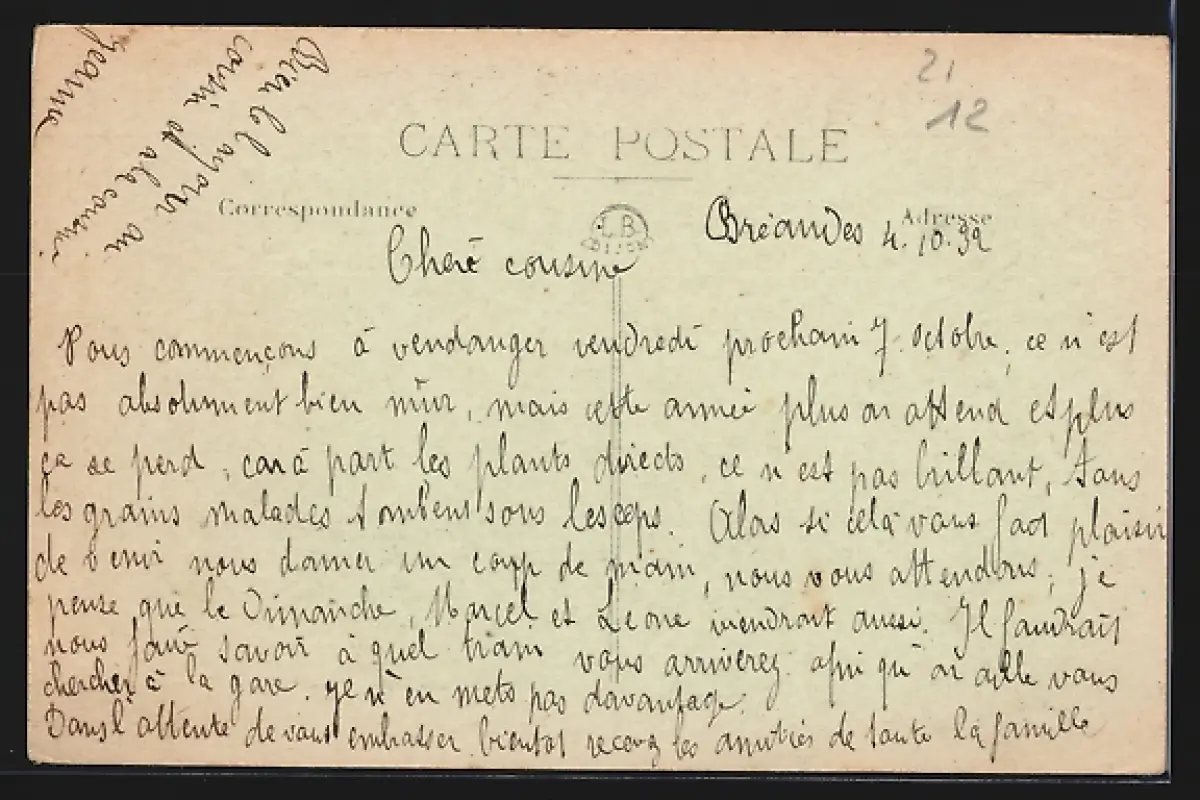 21
12
CARTE POSTALE
Correspondance
Adresse
L.B.
DIJON
Bréandes 4.10.32
Chère cousine
Nous commençons à vendanger vendredi prochain 7 octobre, ce n'est
pas absolument bien mûr, mais cette année plus on attend et plus
ça se perd, car à part les plants directs, ce n'est pas brillant, tous
les grains malades tombent sous les ceps. Alors si cela vous fait plaisir
de venir nous donner un coup de main, nous vous attendons, je
pense que le Dimanche, Marcel et Léone viendront aussi. Il faudrait
nous faire savoir à quel train vous arriverez afin qu'on aille vous
chercher à la gare. je n'en mets pas davantage.
Dans l'attente de vous embrasser bientôt recevez les amitiés de toute la famille
Bien le bonjour au
cousin et à la cousine.
Jeanne